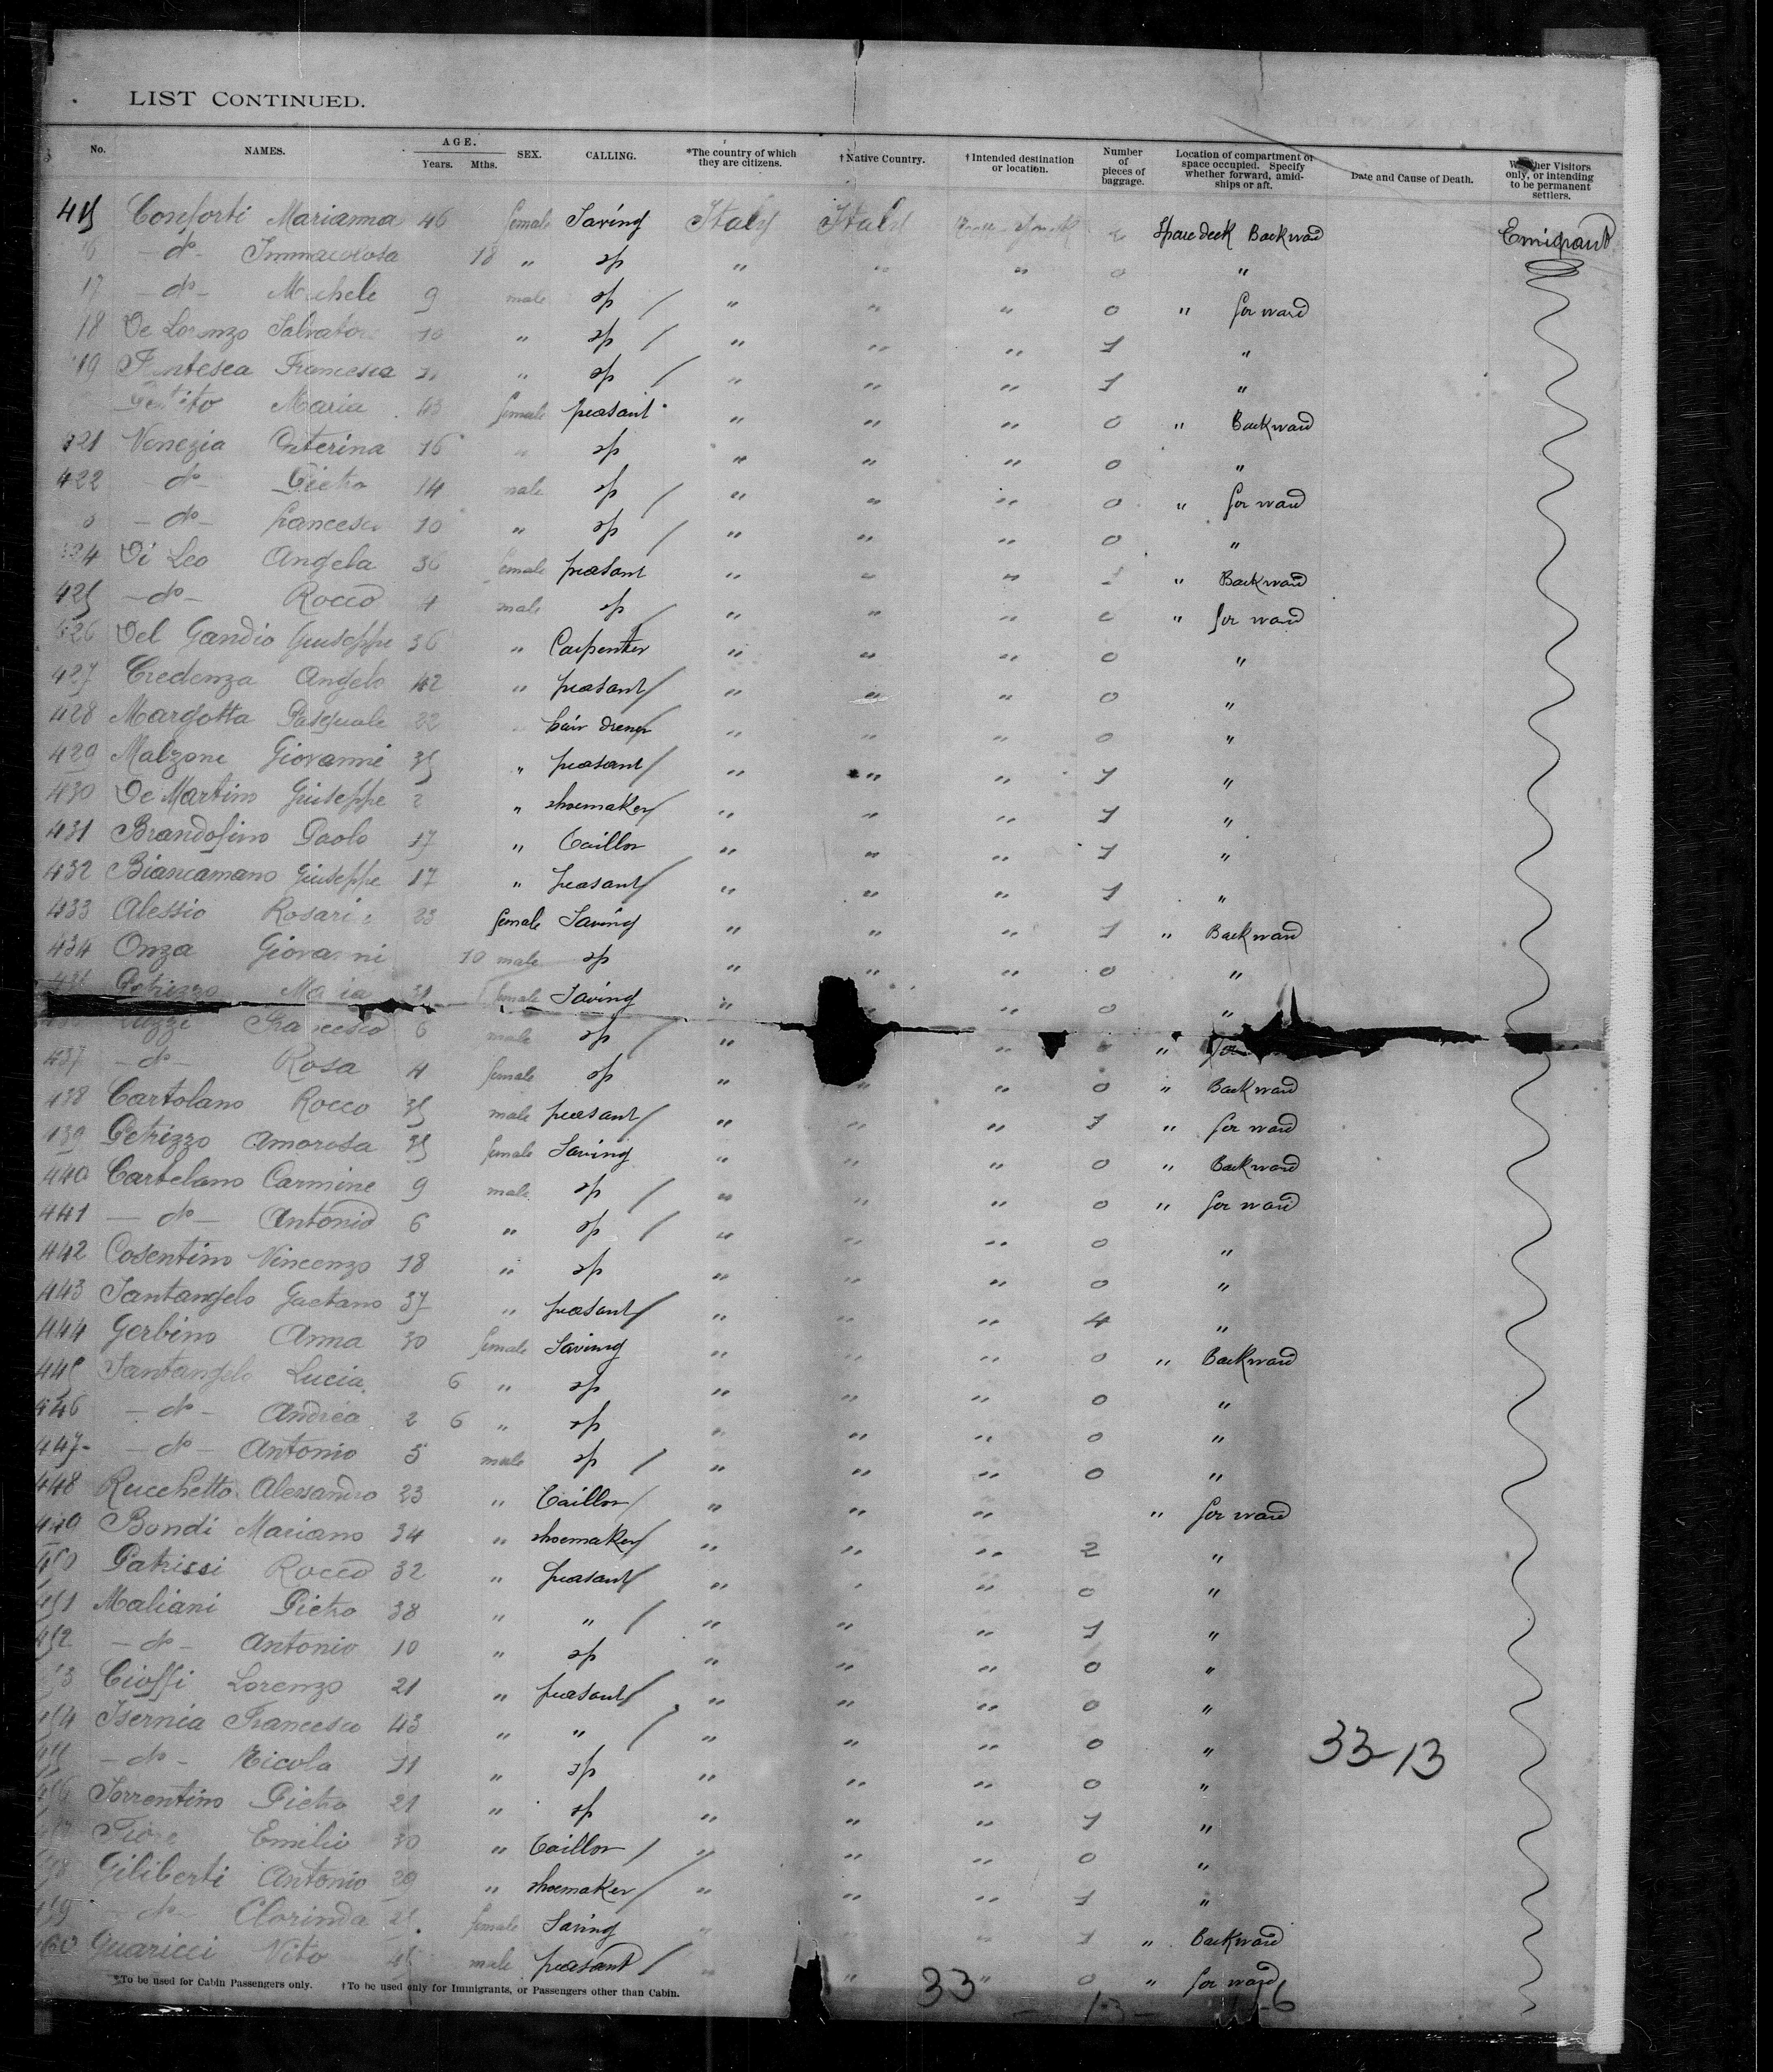 LIST CONTINUED.
No. NAMES. AGE. Years. Mths. SEX. CALLING. *The country of which they are citizens. †Native Country. †Intended destination or location. Number of pieces of baggage. Location of compartment or space occupied. Specify whether forward, amidships or aft. Date and Cause of Death. Whether Visitors only, or intending to be permanent settlers.
415 Conforti Marianna 46 female Saving Italy Italy Spare deck Backward Emigrant
- do - 18 " sp " " " 0 "
17 - do - Michele 9 male sp / " " " 0 " for ward
18 De Lorenzo Salvatore 10 " sp / " " " 1 "
19 Francesca " sp / " " " 1 "
Maria 43 female peasant " " " 0 " Backward
421 Venezia Caterina 16 " sp " " " 0 "
422 - do - Pietro 14 male sp / " " " 0 " for ward
- do - francesco 10 " sp / " " " 0 "
424 Di Leo Angela 36 female peasant " " " " Backward
425 - do - Rocco 4 male sp / " " " 0 " for ward
426 Del Gandio Giuseppe 36 " Carpenter " " " 0 "
427 Credenza Angelo 42 " peasant / " " " 0 "
428 Margotta Pasquale 22 " hair dresser / " " " 0 "
429 Malzone Giovanni 35 " peasant / " " " 1 "
430 De Martino Giuseppe " shoemaker / " " " 1 "
431 Brandofino Paolo 17 " Taillor " " " 1 "
432 Biancamano Giuseppe 17 " peasant / " " " 1 "
433 Alessio 23 female Saving " " " 1 " Backward
434 Onza Giovanni 10 male sp " " " 0 "
Petrizzo Maria 31 female Saving " " " 0 "
Francesco 6 male sp / " " "
437 - do - Rosa 4 female sp " " " 0 " Backward
438 Cartolano Rocco 35 male peasant / " " " 1 " for ward
439 Petrizzo Amorosa 35 female Saving " " " 0 " Backward
440 Cartelano Carmine 9 male sp / " " " 0 " for ward
441 - do - Antonio 6 " sp / " " " 0 "
442 Cosentino Vincenzo 18 " sp " " " 0 "
443 Santangelo Gaetano 37 " peasant / " " " 4 "
444 Gerbino Anna 30 female Saving " " " 0 " Backward
445 Santangelo Lucia 6 " sp " " " 0 "
446 - do - Andrea 2 6 " sp " " " 0 "
447 - do - Antonio 5 male sp / " " " 0 "
448 Rucchetto Alessandro 23 " Taillor / " " " " for ward
449 Bondi Mariano 34 " shoemaker / " " " 2 "
450 Patrissi Rocco 32 " peasant / " " " 0 "
451 Maliani Pietro 38 " " / " " " 1 "
452 - do - Antonio 10 " sp " " " 0 "
453 Cioffi Lorenzo 21 " peasant / " " " 0 "
454 Isernia Francesco 43 " " / " " " 0 "
455 - do - Nicola 11 " sp " " " 0 "
33-13
456 Sorrentino Pietro 21 " sp " " " 1 "
Emilio 30 " Taillor / " " " 0 "
458 Giliberti Antonio 29 " shoemaker / " " " 1 "
459 - do - Clorinda female Saving " " " 1 " Backward
460 Guaricci Vito 45 male peasant / " " " 0 " for ward
*To be used for Cabin Passengers only. †To be used only for Immigrants, or Passengers other than Cabin.
33
- 13 -